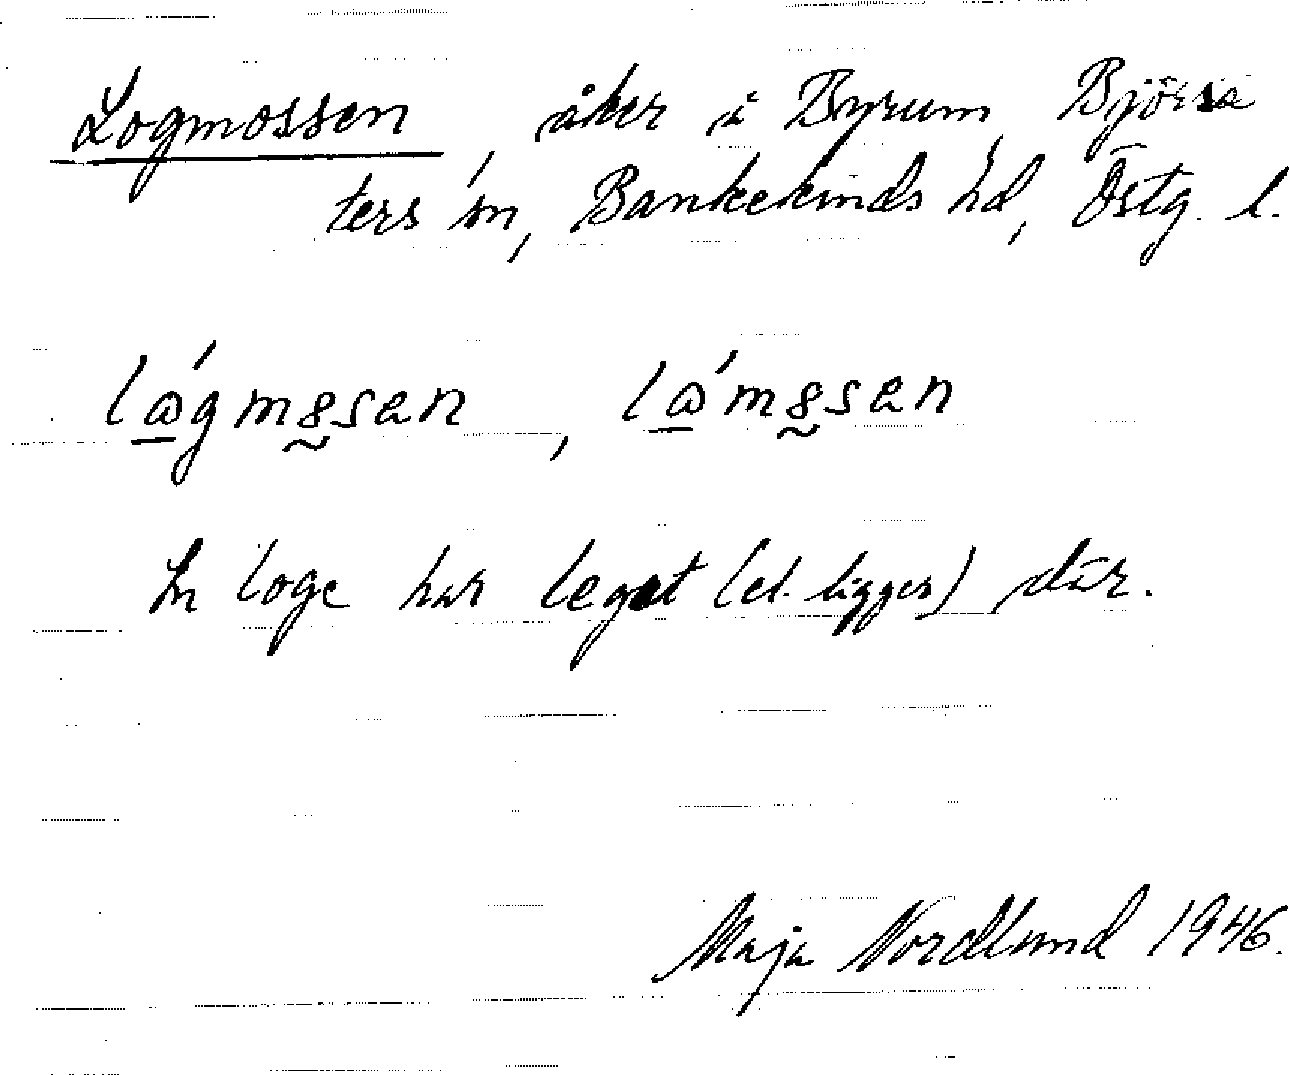 Logmossen, åker i Byrum, Björsä
ters sn, Bankekinds hd, Östg. l.
lágmɞsan, lámɞsan
En loge har legat (el. ligger) där.
Maja Nordlund 1946.